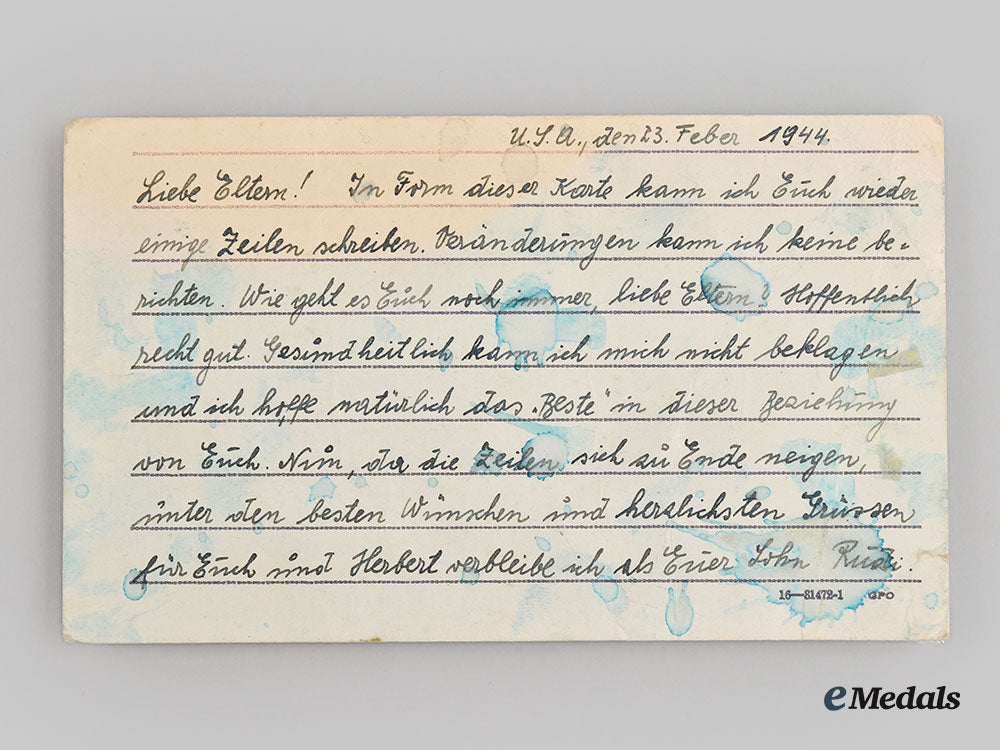 U.S.A., den 23. Feber 1944.
Liebe Eltern! In Form dieser Karte kann ich Euch wieder
einige Zeilen schreiben. Veränderungen kann ich keine be-
richten. Wie geht es Euch noch immer, liebe Eltern? Hoffentlich
recht gut. Gesundheitlich kann ich mich nicht beklagen
und ich hoffe natürlich das „Beste" in dieser Beziehung
von Euch. Nun, da die Zeilen sich zu Ende neigen,
unter den besten Wünschen und herzlichsten Grüssen
für Euch und Herbert verbleibe ich als Euer Sohn Rudi.
16—31472-1 GPO
eMedals